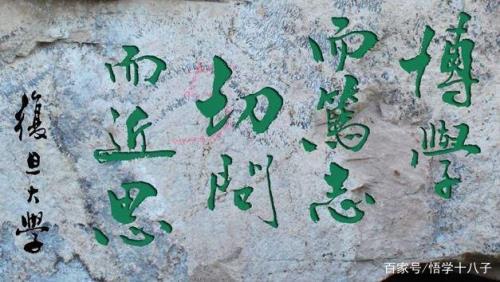 博學
而篤志
切問
而近思
復旦大學
百家号/悟学十八子